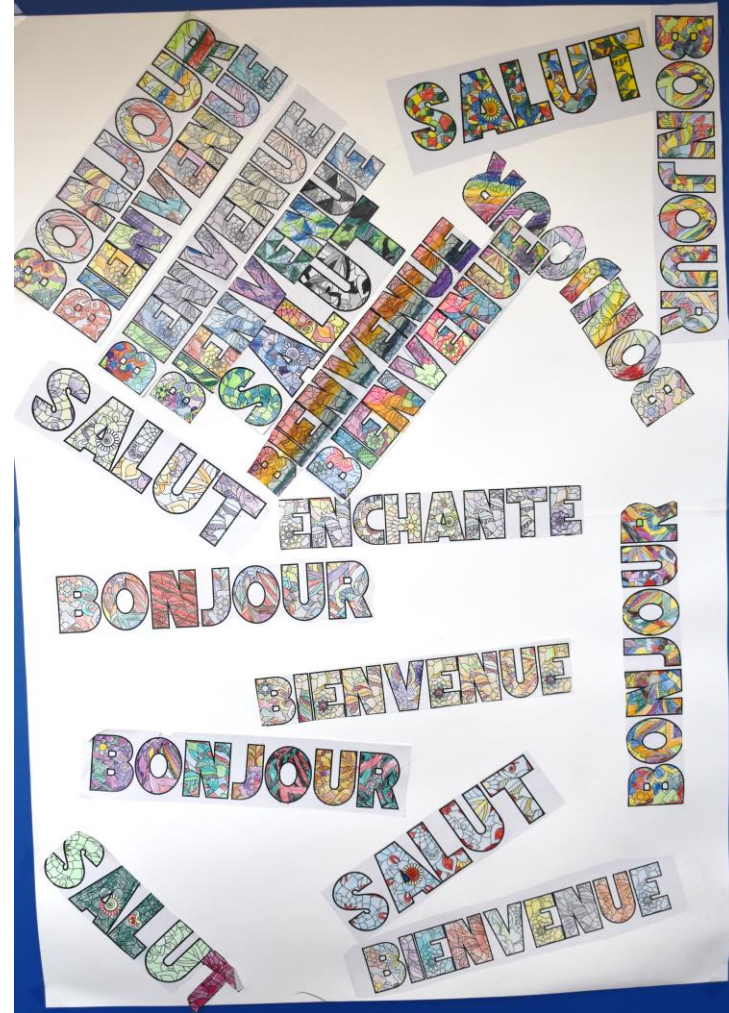 BONJOUR
BIENVENUE
BIENVENUE
BIENVENUE
SALUT
BIENVENUE
BIENVENUE
SALUT
BONJOUR
BONJOUR
SALUT
ENCHANTE
BONJOUR
BONJOUR
BIENVENUE
BONJOUR
SALUT
SALUT
BIENVENUE